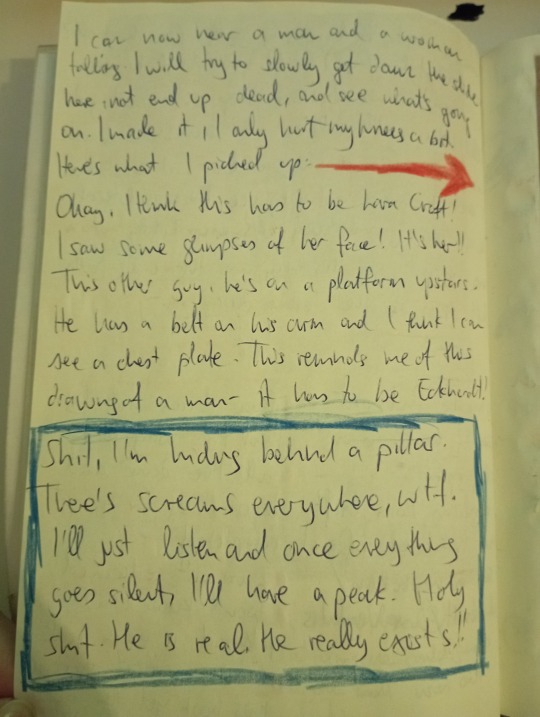 I can now hear a man and a woman
talking. I will try to slowly get down the slide
here, not end up dead, and see what's going
on. I made it, I only hurt my knees a bit.
Here's what I picked up:
Okay. I think this has to be Lara Croft!
I saw some glimpses of her face! It's her!!
This other guy, he's on a platform upstairs.
He has a belt on his arm and I think I can
see a chest plate. This reminds me of this
drawing of a man - it has to be Eckhardt!
Shit, I'm hiding behind a pillar.
There's screams everywhere, wtf.
I'll just listen and once everything
goes silent, I'll have a peak. Holy
shit. He is real. He really exists!!